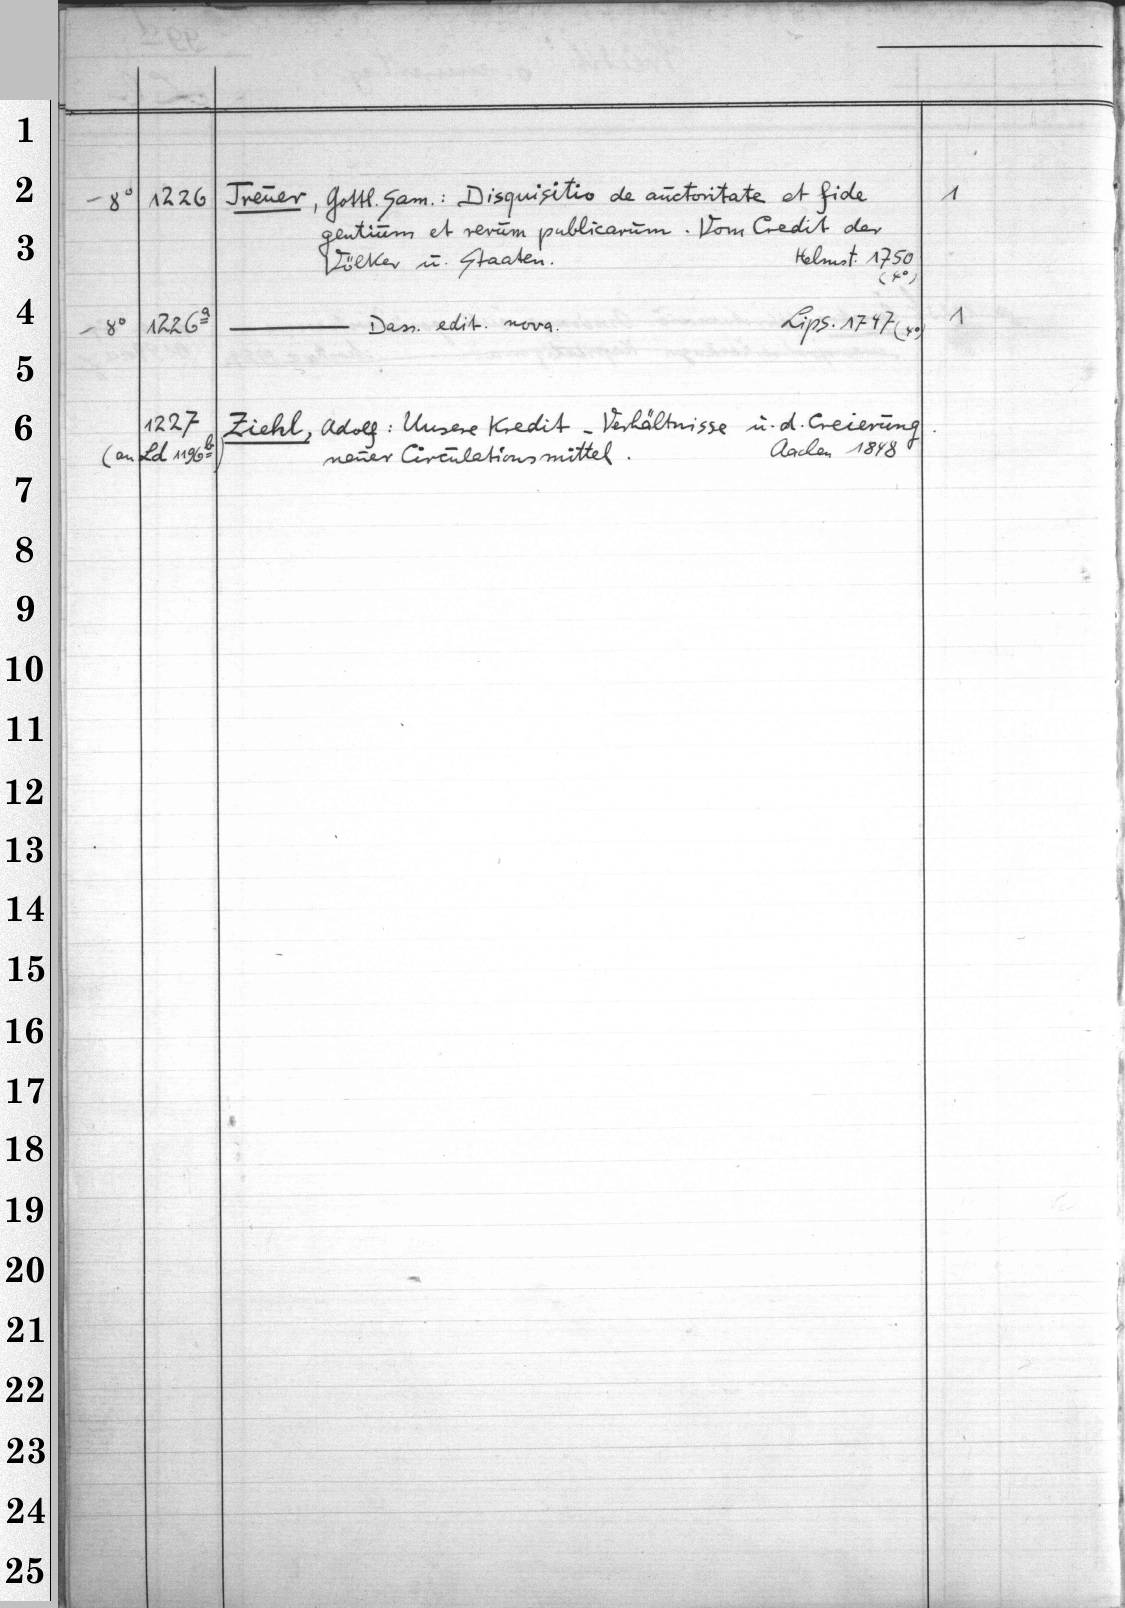 1
2 – 8° 1226 Treuer, Gottl. Sam.: Disquisitio de auctoritate et fide 1
gentium et rerum publicarum. Vom Credit der
3 Völker u. Staaten. Helmst. 1750
(4°)
4 – 8° 1226a ——— Dass. edit. nova. Lips. 1747 (4°) 1
5
6 1227 Ziehl, Adolf: Unsere Kredit-Verhältnisse u. d. Creierung
(an Ld 1196b) neuer Circulationsmittel. Aachen 1848
7
8
9
10
11
12
13
14
15
16
17
18
19
20
21
22
23
24
25